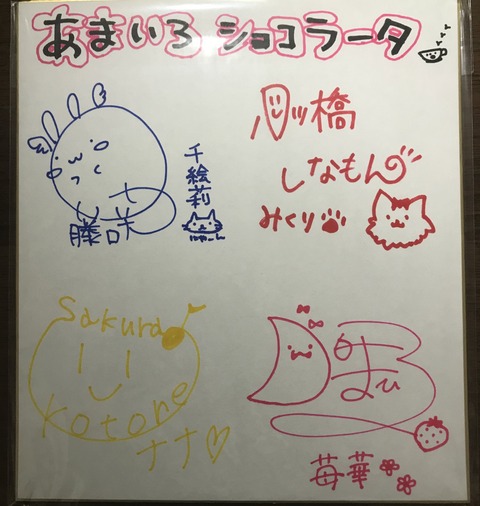 あまいろ ショコラータ
千絵莉
にゃーん
藤咲
八ッ橋
しなもん
みくり
Sakura
Kotone
ナナ
の
まひろ
苺華